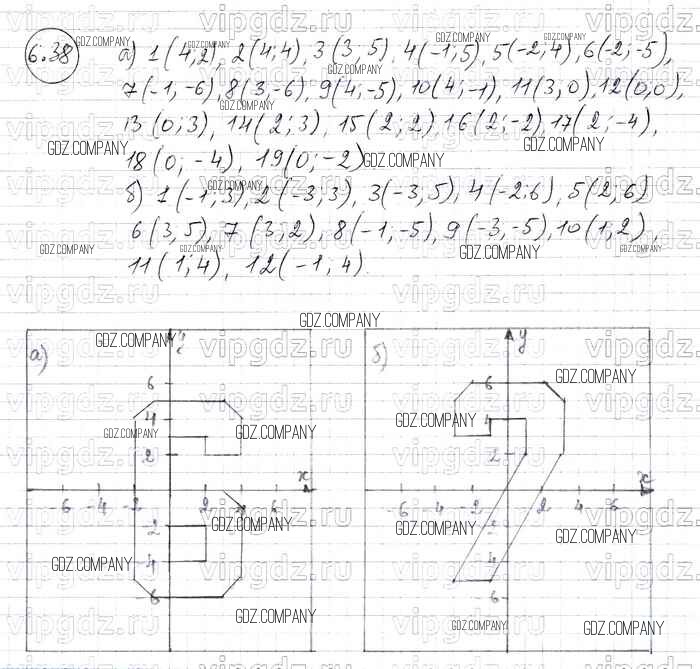 6.38 а) 1(4;2), 2(4;4), 3(3,5), 4(-1;5), 5(-2;4), 6(-2;-5),
7(-1,-6), 8(3,-6), 9(4;-5), 10(4;-1), 11(3,0), 12(0;0),
13(0;3), 14(2;3), 15(2;2) 16(2;-2), 17(2;-4),
18(0;-4), 19(0;-2)
б) 1(-1;3), 2(-3;3), 3(-3,5), 4(-2.6), 5(2,6)
6(3,5), 7(3,2), 8(-1,-5), 9(-3,-5), 10(1,2),
11(1;4), 12(-1,4).
а) y
6
4
2
-6 -4 -2 2 4 6 x
-2
-4
-6
б) y
6
4
2
-6 -4 -2 2 4 6 x
-2
-4
-6
GDZ.COMPANY
vipgdz.ru